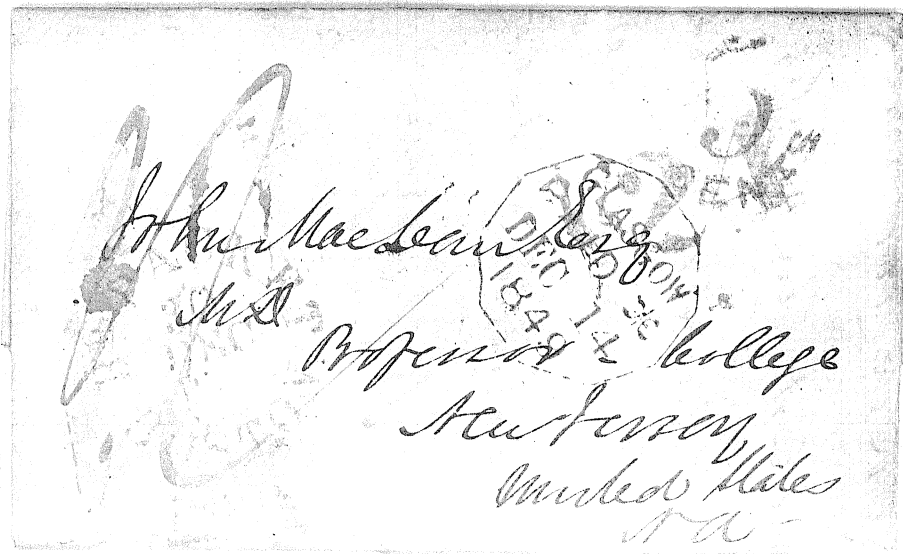 5
CENTS
GLASGOW
PAID
DEC 14
184
John MacLean Esq
M D
Professor - College
New Jersey
United States
N A -